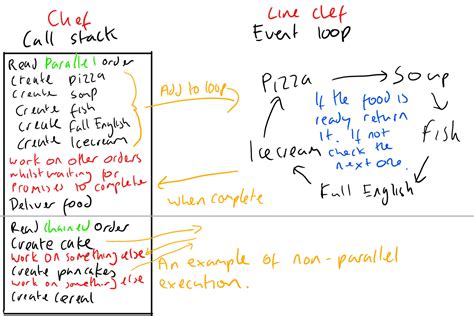 Chef
Call stack
Read Parallel order
Create pizza
Create soup
Create fish
Create Full English
Create Icecream
Work on other orders
whilst waiting for
Promises to complete
Deliver food
Read chained order
Create cake
Work on something else
Create pancakes
Work on something else
Create cereal
Add to loop
when complete
Line chef
Event loop
Pizza
Soup
Fish
Full English
Icecream
If the food is
ready return
it. If not
check the
next one.
An example of non-parallel
execution.